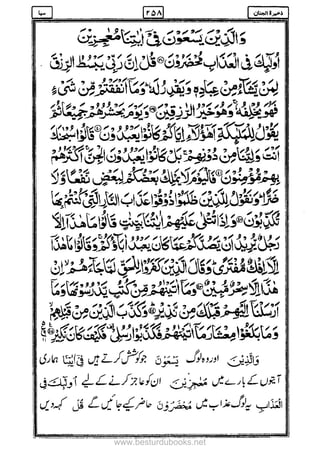 ذخيرة الجنان ٢٥٨ سبا
وَالَّذِيْنَ يَسْعَوْنَ فِيْٓ اٰيٰتِنَا مُعٰجِزِيْنَ
اُولٰٓئِكَ فِي الْعَذَابِ مُحْضَرُوْنَ قُلْ اِنَّ رَبِّيْ يَبْسُطُ الرِّزْقَ
لِمَنْ يَّشَآءُ مِنْ عِبَادِهٖ وَيَقْدِرُ لَهٗ وَمَآ اَنْفَقْتُمْ مِّنْ شَيْءٍ
فَهُوَ يُخْلِفُهٗ وَهُوَ خَيْرُ الرّٰزِقِيْنَ وَيَوْمَ يَحْشُرُهُمْ جَمِيْعًا ثُمَّ
يَقُوْلُ لِلْمَلٰٓئِكَةِ اَهٰٓؤُلَآءِ اِيَّاكُمْ كَانُوْا يَعْبُدُوْنَ قَالُوْا سُبْحٰنَكَ
اَنْتَ وَلِيُّنَا مِنْ دُوْنِهِمْ بَلْ كَانُوْا يَعْبُدُوْنَ الْجِنَّ اَكْثَرُهُمْ
بِهِمْ مُّؤْمِنُوْنَ فَالْيَوْمَ لَا يَمْلِكُ بَعْضُكُمْ لِبَعْضٍ نَّفْعًا وَّلَا
ضَرًّا وَنَقُوْلُ لِلَّذِيْنَ ظَلَمُوْا ذُوْقُوْا عَذَابَ النَّارِ الَّتِيْ كُنْتُمْ بِهَا
تُكَذِّبُوْنَ وَاِذَا تُتْلٰى عَلَيْهِمْ اٰيٰتُنَا بَيِّنٰتٍ قَالُوْا مَا هٰذَآ اِلَّا
رَجُلٌ يُّرِيْدُ اَنْ يَّصُدَّكُمْ عَمَّا كَانَ يَعْبُدُ اٰبَآؤُكُمْ وَقَالُوْا مَا هٰذَآ
اِلَّآ اِفْكٌ مُّفْتَرًى وَقَالَ الَّذِيْنَ كَفَرُوْا لِلْحَقِّ لَمَّا جَآءَهُمْ اِنْ
هٰذَآ اِلَّا سِحْرٌ مُّبِيْنٌ وَمَآ اٰتَيْنٰهُمْ مِّنْ كُتُبٍ يَّدْرُسُوْنَهَا وَمَآ
اَرْسَلْنَآ اِلَيْهِمْ قَبْلَكَ مِنْ نَّذِيْرٍ وَكَذَّبَ الَّذِيْنَ مِنْ قَبْلِهِمْ
وَمَا بَلَغُوْا مِعْشَارَ مَآ اٰتَيْنٰهُمْ فَكَذَّبُوْا رُسُلِيْ فَكَيْفَ كَانَ نَكِيْرِ
وَالَّذِيْنَ اور وہ لوگ يَسْعَوْنَ جو کوشش کرتے ہیں فِيْٓ اٰيٰتِنَا ہماری
آیتوں کے بارے میں مُعٰجِزِيْنَ ان کو عاجز کرنے کے لیے اُولٰٓئِكَ فِي
الْعَذَابِ یہ لوگ عذاب میں مُحْضَرُوْنَ حاضر کیے جائیں گے قُلْ کہہ دیں
www.besturdubooks.net